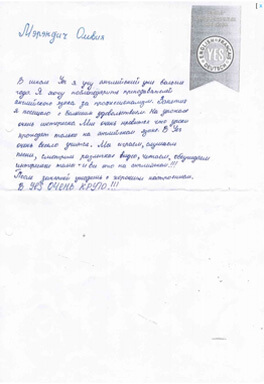 Мэрэндич Оливия
В школе Yes я учу английский уже больше
года. Я хочу поблагодарить преподавателей
английского языка за профессионализм. Занятия
я посещаю с большим удовольствием. На уроках
очень интересно. Мне очень нравится что уроки
проходят только на английском языке. В Yes
очень весело учиться. Мы играем, слушаем
песни, смотрим различные видео, читаем, обсуждаем
интересные темы и все это на английском!
После занятий ухожу с хорошим настроением.
В YES ОЧЕНЬ КРУТО!!!
YES